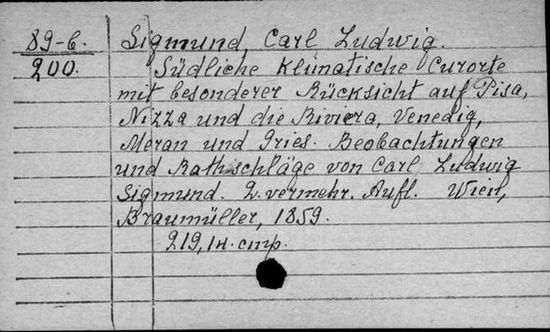 89-6.
200.
Sigmund, Carl Ludwig.
Südliche klimatische Curorte
mit besonderer Rücksicht auf Pisa,
Nizza und die Riviera, Venedig,
Meran und Gries. Beobachtungen
und Rathschläge von Carl Ludwig
Sigmund. 2. vermehr. Aufl. Wien,
Braumüller, 1859.
219, IH. cmp.